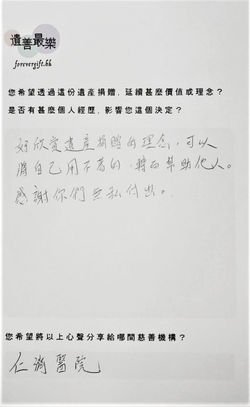 遺善最樂
forevergift.hk
您希望透過這份遺產捐贈，延續甚麼價值或理念？
是否有甚麼個人經歷，影響您這個決定？
好欣賞遺產捐贈的理念，可以
將自己用不著的，轉而幫助他人。
感謝你們無私付出。
您希望將以上心聲分享給哪間慈善機構？
仁濟醫院